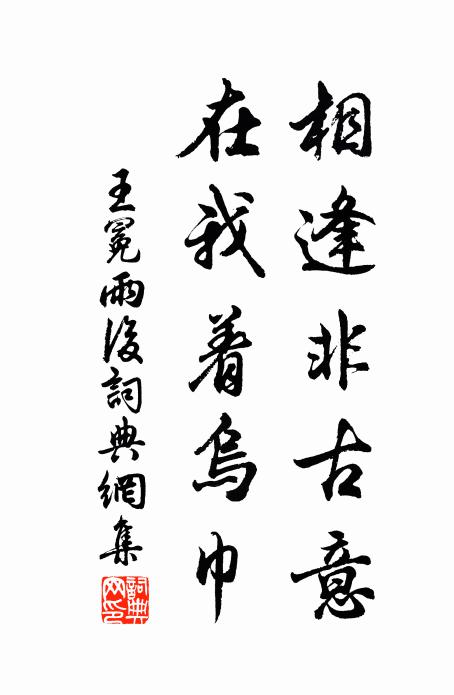 相逢非古意
在我着烏巾
王冕雨後詞典網集
詞典網印